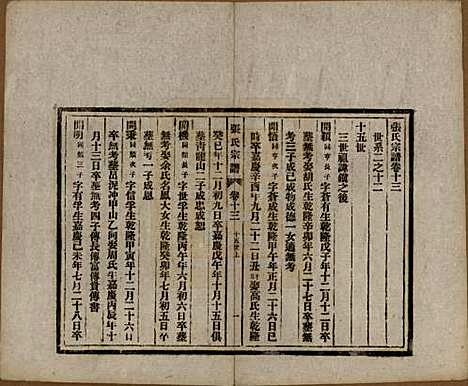 張氏宗譜卷十三
世系二之十二
十五世
三世祖諱鎮之後
開穎同亨次子字蒼有生乾隆戊子年十二月十二日卒
墓無考娶胡氏生乾隆辛卯年六月二十七日卒墓無
考三子成已成物成德一女適無考
開悟同亨三子字蒼成生乾隆甲午年正月二十六日已
時卒嘉慶辛酉年九月二十二日丑時娶高氏生乾隆
張氏宗譜 卷十三 十五世上 一
癸巳年十二月初九日卒嘉慶戊午年十月十五日俱
墓青龍山二子成忠成恕
開機同順長子字世孚生乾隆丙午年六月初六日卒墓
無考娶余氏名鳳大女生乾隆癸卯年七月初五日卒
墓無考一子成恩
開秉同順次子字信孚生乾隆甲寅年十二月二十六日
卒無考墓呂泥冲甲山乙向娶周氏生嘉慶丙辰年十
月十三日卒墓無考四子傳長傳富傳貴傳書
開明同順三子字有孚生嘉慶己未年七月二十八日卒